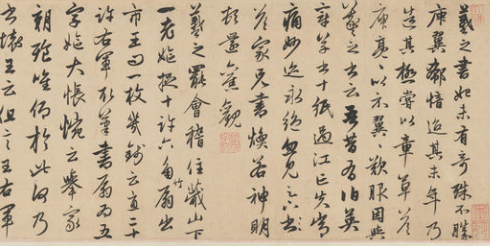 羲之書初未有奇殊不勝
庾翼郗愔迨其末年乃
造其極嘗以章草答
庾亮亮以示翼翼歎服因與
羲之書云吾昔有伯英
章草十紙過江亡失常
痛妙迹永絕忽見足下
答家兄書煥若神明
頓還舊觀
羲之罷會稽住蕺山下
一老嫗捉十許六角竹扇出
市王問一枚幾錢云直二十
許右軍取筆書扇扇為五
字嫗大悵惋云舉家
朝飧唯仰於此何乃
書壞王云但言王右軍